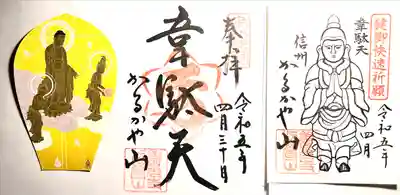 奉拝
令和五年
四月三十日
韋駄天
かるかや山
健脚快速祈願
韋駄天
信州
かるかや山
令和五年
四月